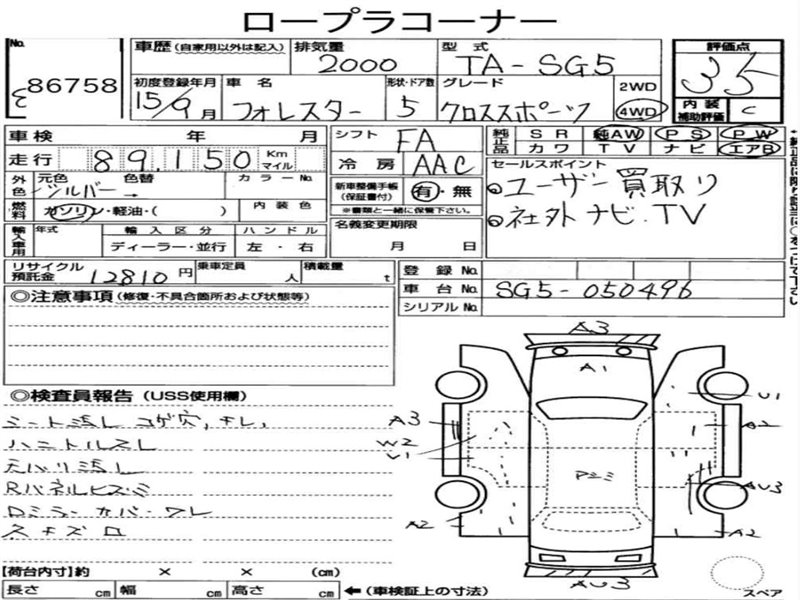 ロープラコーナー
No. 86758
車歴 (自家用以外は記入) 排気量 2000 型式 TA-SG5 評価点 35
初度登録年月 15/9月 車名 フォレスター 形状・ドア数 5 グレード クロススポーツ 2WD 4WD 内装補助評価 C
車検 年 月 シフト FA 純正品 SR 純AW PS PW
カワ TV ナビ エアB
走行 89,150 Km マイル 冷房 AAC セールスポイント
外色 元色 色替 シルバー → カラーNo. 新車整備手帳 (保証書付) 有・無 ユーザー買取り
※書類と一緒に保管下さい。
燃料 ガソリン・軽油・( ) 内装色 名義変更期限 月 日 社外ナビ.TV
輸入車用 年式 輸入区分 ディーラー・並行 ハンドル 左・右
リサイクル預託金 12810円 乗車定員 人 積載量 t 登録No.
車台No. SG5-050496
シリアルNo.
◎注意事項 (修復・不具合箇所および状態等)
◎検査員報告 (USS使用欄)
シート汚レ コゲ穴,キレ,
ハンドルスレ
天ハリ汚レ
Rパネルヒズミ
Dミラーカバーワレ
スキズ
A3
A1
U1
A3
A2
W2
U1
AU3
A2
A2
AU3
スペア
【荷台内寸】約 × × (cm)
長さ cm 幅 cm 高さ cm ←(車検証上の寸法)